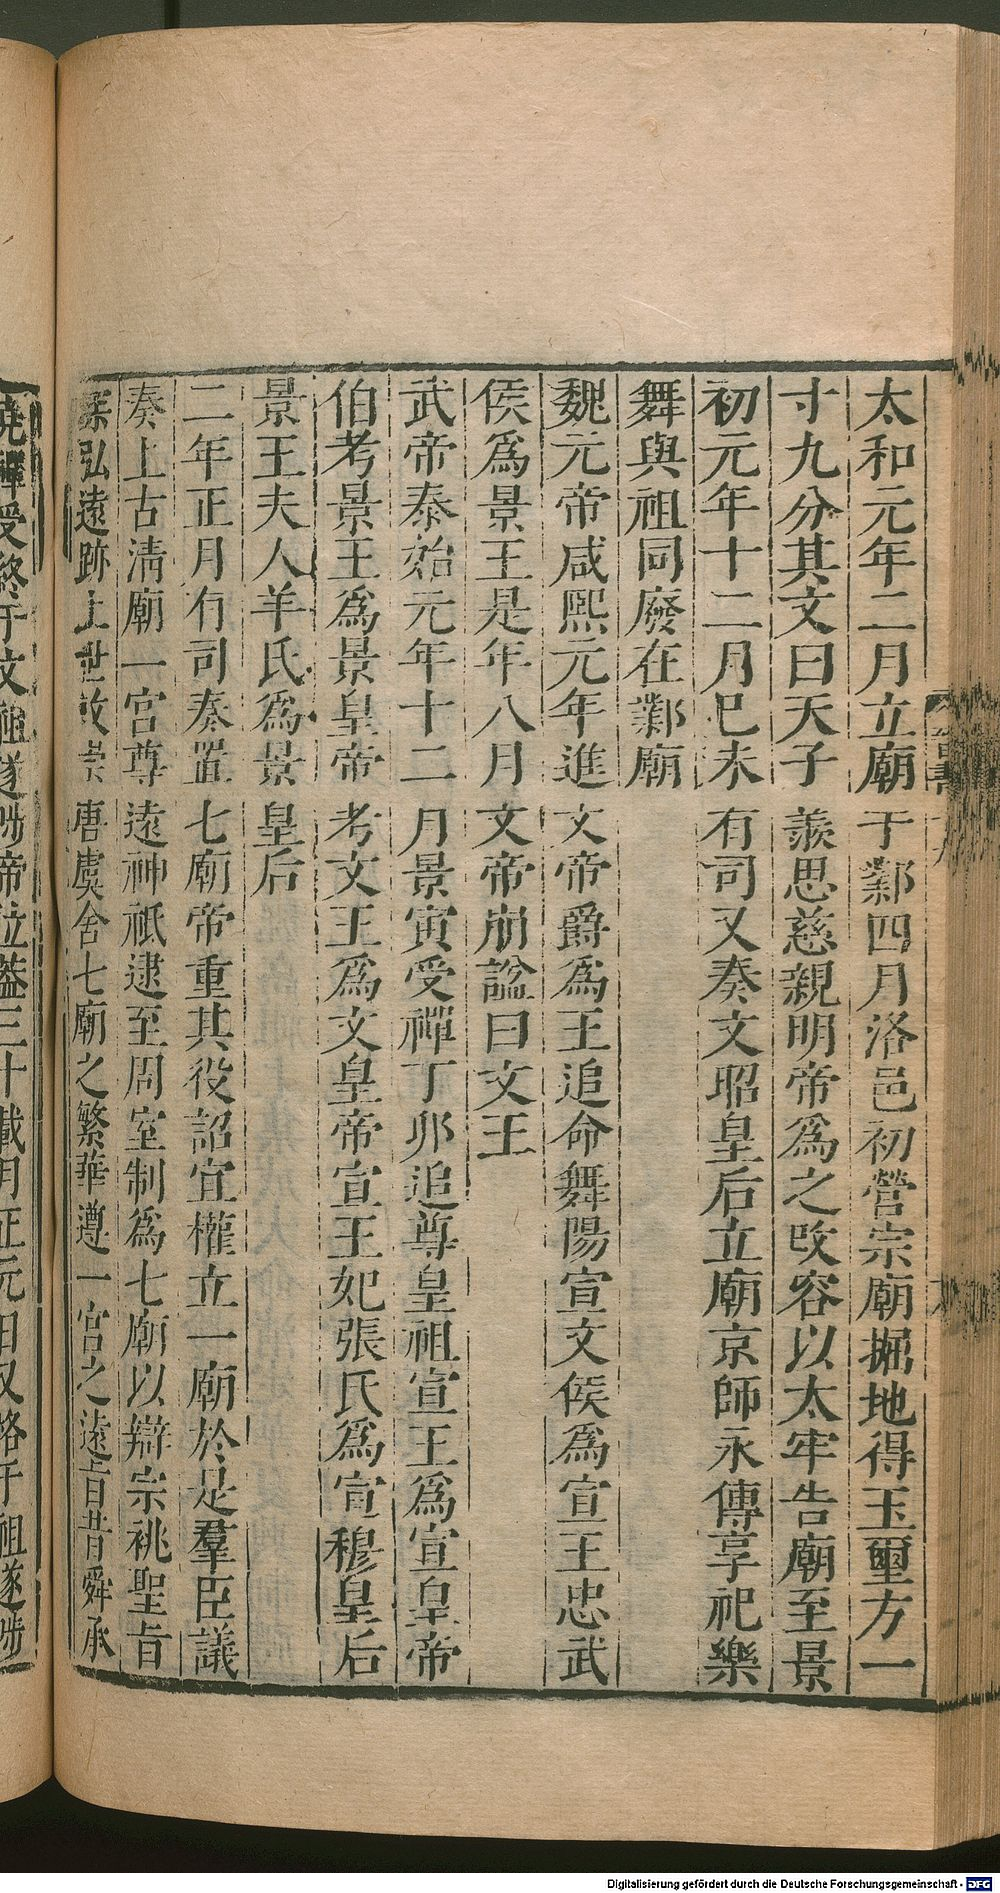 太和元年二月立廟于鄴四月洛邑初營宗廟掘地得玉璽方一
寸九分其文曰天子羨思慈親明帝爲之改容以太牢告廟至景
初元年十二月巳未有司又奏文昭皇后立廟京師永傳享祀樂
舞與祖同廢在鄴廟
魏元帝咸熙元年進文帝爵爲王追命舞陽宣文侯爲宣王忠武
侯爲景王是年八月文帝崩謚曰文王
武帝泰始元年十二月景寅受禪丁卯追尊皇祖宣王爲宣皇帝
伯考景王爲景皇帝考文王爲文皇帝宣王妃張氏爲宣穆皇后
景王夫人羊氏爲景皇后
二年正月有司奏置七廟帝重其役詔宜權立一廟於是羣臣議
奏上古淸廟一宮尊遠神祇逮至周室制爲七廟以辯宗祧聖旨
深弘遠跡上世敦崇唐虞舍七廟之繁華遵一宮之遠旨昔舜承
堯禪受終于文祖遂陟帝位葢三十載月正元日又格于祖遂陟
晉書
Digitalisierung gefördert durch die Deutsche Forschungsgemeinschaft - DFG